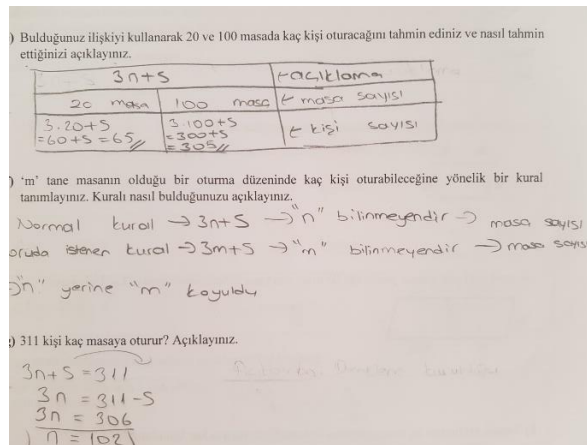 ) Bulduğunuz ilişkiyi kullanarak 20 ve 100 masada kaç kişi oturacağını tahmin ediniz ve nasıl tahmin
ettiğinizi açıklayınız.
3n+5 ←açıklama
20 masa 100 masa ← masa sayısı
3.20+5 3.100+5 ← kişi sayısı
=60+5=65// =300+5
=305//
) ‘m’ tane masanın olduğu bir oturma düzeninde kaç kişi oturabileceğine yönelik bir kural
tanımlayınız. Kuralı nasıl bulduğunuzu açıklayınız.
Normal kural → 3n+5 → "n" bilinmeyendir → masa sayısı
oruda istenen kural → 3m+5 → "m" bilinmeyendir → masa sayısı
→ "n" yerine "m" koyuldu
) 311 kişi kaç masaya oturur? Açıklayınız.
3n+5=311
3n = 311-5
3n = 306
n = 102